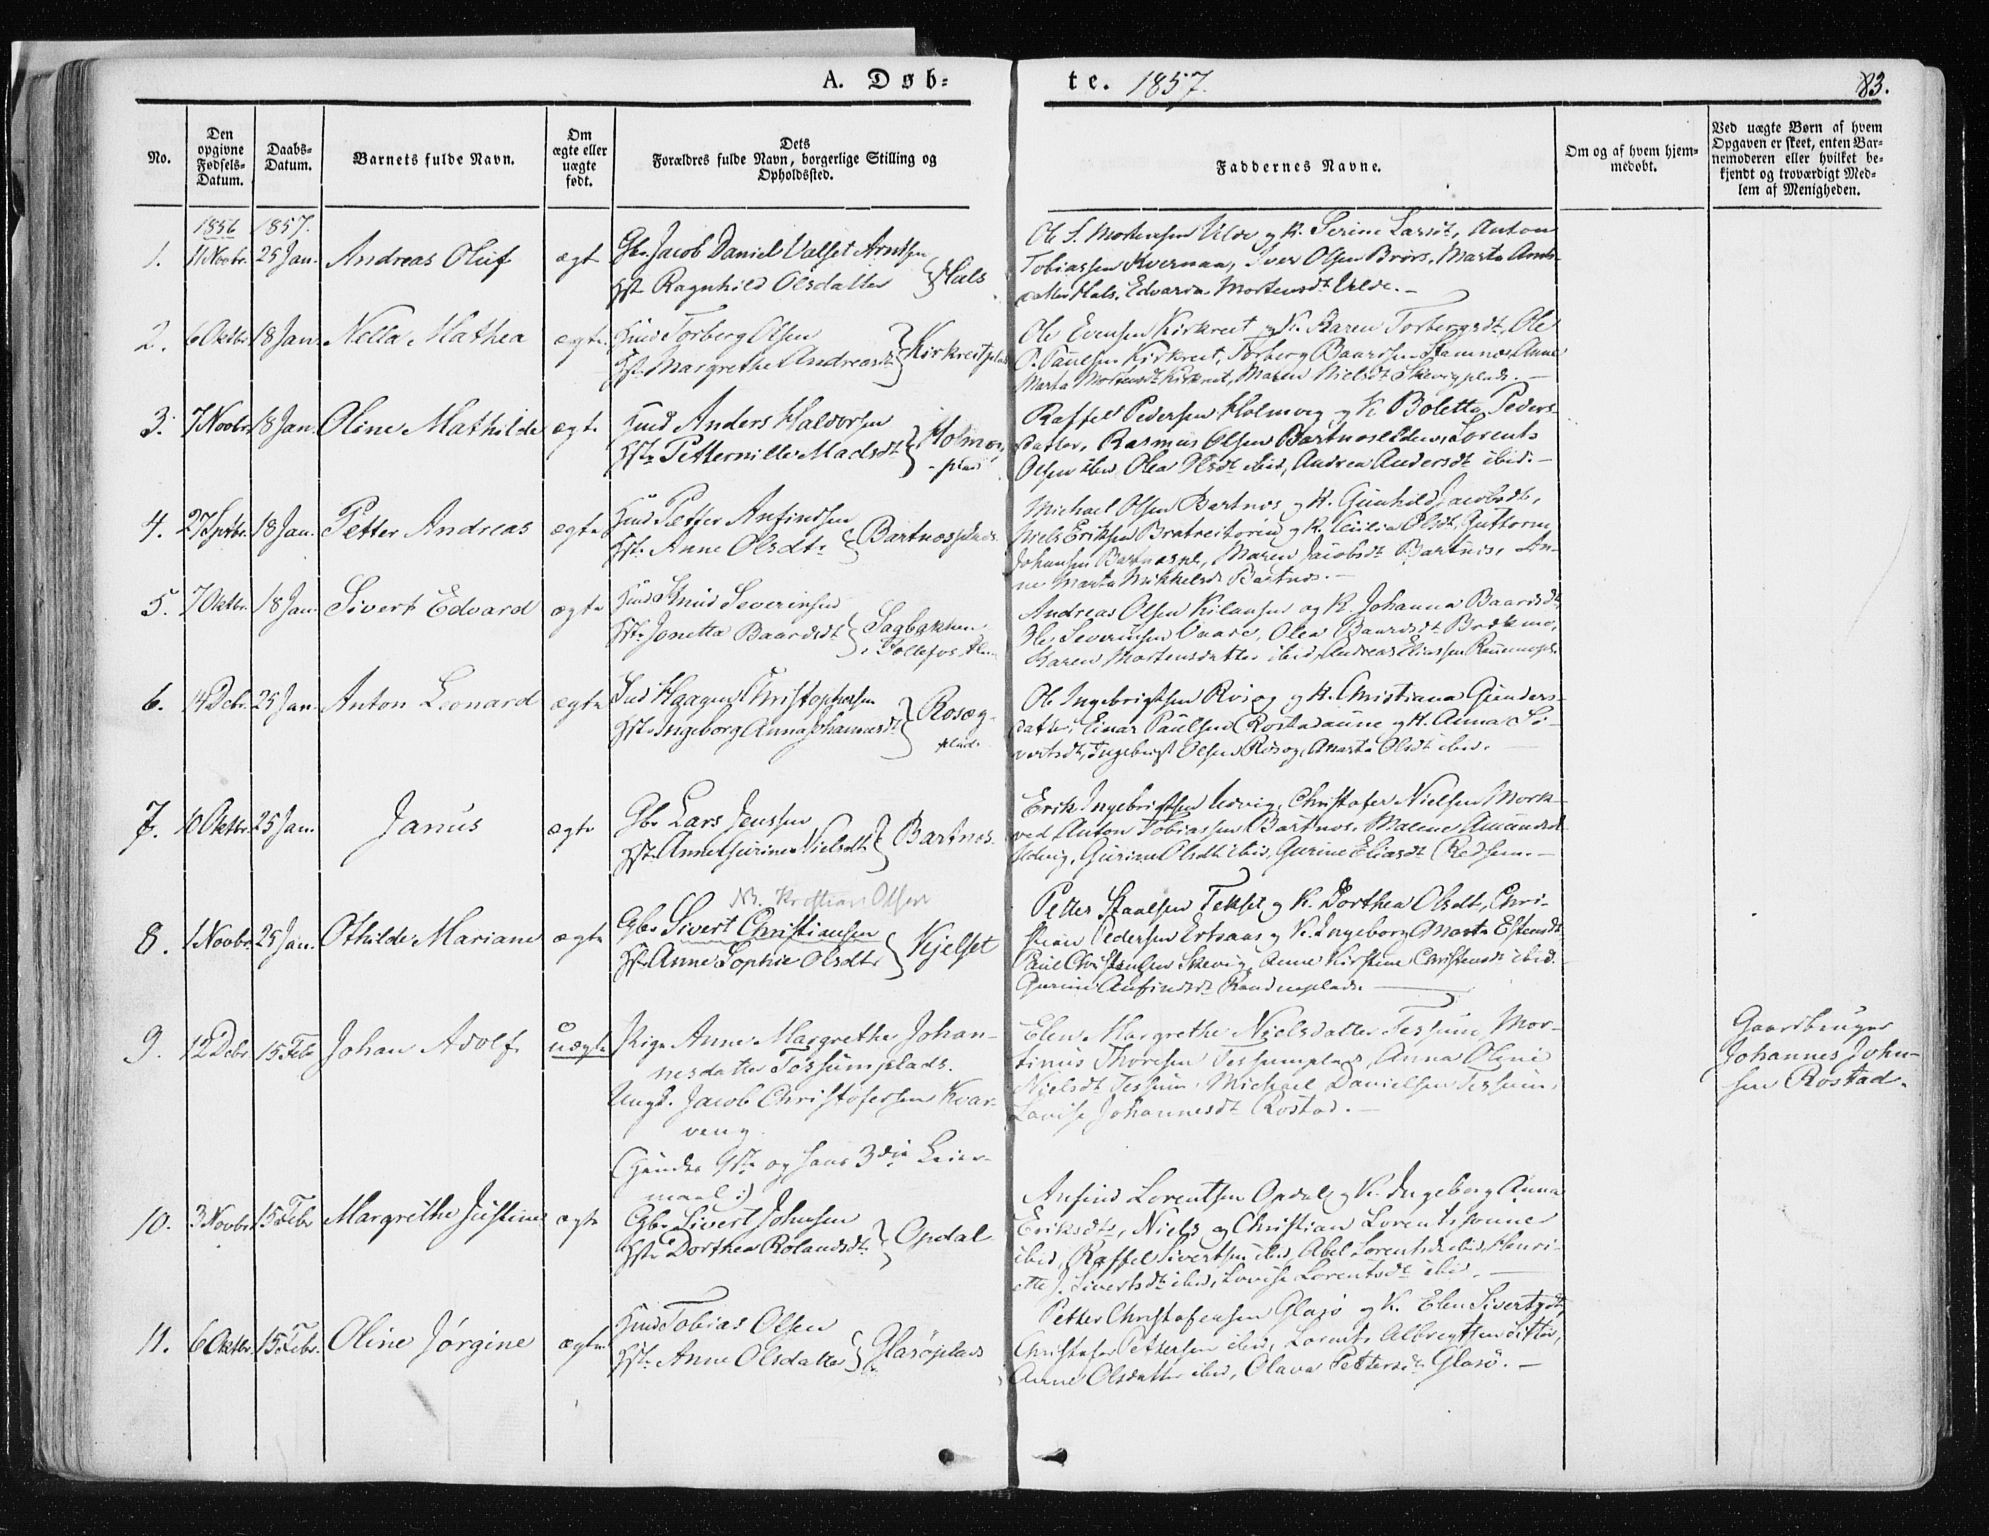 A. Døb=
te. 1857.
83.
No.
Den opgivne Fødsels-Datum.
Daabs-Datum.
Barnets fulde Navn.
Om ægte eller uægte født.
Dets Forældres fulde Navn, borgerlige Stilling og Opholdssted.
Faddernes Navne.
Om og af hvem hjemmedøbt.
Ved uægte Børn af hvem Opgaven er skeet, enten Barnemoderen eller hvilket bekjendt og troværdigt Medlem af Menigheden.
1856 1857.
1. 11 Novbr. 25 Jan. Andreas Oluf ægte
Gbr. Jacob Daniel Valset Arntsen,
Hst. Ragnhild Olsdatter } Hals
Tobiassen Kvernaa, Iver Olsen Brørs, Marta
Hals, Edvarda Mortensdt Velde. —
2. 6 Oktbr. 18 Jan. Nella Mathea ægte
Huusmd. Torberg Olsen
Hst. Margrethe Andreasdt } Kirkreitplads
Ole Evensen Kirkreit og K. Karen Torbergsdt, Ole
P. Paulsen Kirkreit, Torberg Baardsen Stamnes, Anne
Marta Kirkreit, Maren Nielsdt Skevigplads. —
3. 7 Novbr. 18 Jan. Oline Mathilde ægte
Anders Haldorsen
Hst. Petternille Madsdt } Holmvig
plads
Raffel Pedersen Holmvig og K. Bolette Peders-
datter, Rasmus Olsen Bartnes, Lorents
Olsen ibid, Olea Olsdt ibid, Andrea Andersdt ibid. —
4. 27 Septbr. 18 Jan. Petter Andreas ægte
Petter Anfindsen
Hst. Anne Olsdt. } Bartnesplads
Michael Olsen Bartnes og K. Gunhild Jacobsdt,
Niels Eriksen og K. Olsdt, Guttorm
Johansen Bartnespl, Maren Jacobsdt Bartnes, An-
ne Marta Mikkelsdt Bartnes. —
5. 7 Oktbr. 18 Jan. Sivert Edvard ægte
Knud Severinsen
Hst. Jonetta Baardsdt } Sagbakken
Follafos
Andreas Olsen og K. Johanna Baardsdt,
Severinsen, Olea Baardsdt
Karen Mortensdatter ibid, Andreas Eliassen
6. 14 Debr. 25 Jan. Anton Leonard ægte
Haagen Christophersen
Hst. Ingeborg Anna Johannesdt } Rosæg
plads.
Ole Ingebrigtsen Rosæg og K. Christiana Gunders-
datter, Einar Paulsen Rostadaune og K. Anna Si-
vertsdt, Ingebrigt Olsen Rosæg, Marta Olsdt ibid. —
7. 10 Oktbr. 25 Jan. Janus ægte
Gbr. Lars Jenssen
Hst. Anne Gurine Nielsdt } Bartnes.
Erik Ingebrigtsen Utvig, Christofer Nielsen Mork-
ved, Anton Tobiassen Bartnes, Malene
Utvig, Gurine Olsdt ibid, Gurine Eliasdt —
NB. Kristian Olsen
8. 1 Novbr. 25 Jan. Othilde Mariane ægte
Gbr. Sivert Christiansen
Hst. Anne Sophie Olsdt } Kjelset
Petter Paulsen Tekset og K. Dorthea Olsdt, Chri-
stian Pedersen Ertsaas og K. Ingeborg Marta Estensdt
Paul Christensen Skevig, Anne Kirstine Christensdt ibid.
Gurine Anfindsdt
9. 12 Debr. 15 Feb. Johan Adolf uægte
Pige Anne Margrethe Johan-
nesdatter Tessumplads.
Ungk. Jacob Christofersen Kvar-
veng.
(hendes 1ste og hans 3die Leier-
maal:)
Elen Margrethe Nielsdatter Tessum, Mor-
tinus Thoresen Tessumplads, Anna Oline
Nielsdt Tessum, Michael Danielsen Tessum,
Lovise Johannesdt Rostad. —
Gaardbruger
Johannes John-
sen Rostad.
10. 3 Novbr. 15 Febr. Margrethe Justine ægte
Gbr. Sivert Johnsen
Hst. Dorthea Rolandsdt. } Opdal
Anfind Lorentsen Opdal og K. Ingeborg Anna
Eriksdt, Niels og Christian Lorentssønner
ibid, Raffel Sivertsen ibid, Abel Lorentsdt ibid, Henri-
ette J. Sivertsdt ibid, Lovise Lorentsdt ibid. —
11. 6 Oktbr. 15 Febr. Oline Jørgine ægte
Tobias Olsen
Hst. Anne Olsdatter } Glasøplads
Petter Christofersen Glasø og K. Elen Sivertsdt,
Christofer Pettersen ibid, Lorents Albregtsen
Anne Olsdatter ibid, Olava Pettersdt Glasø. —